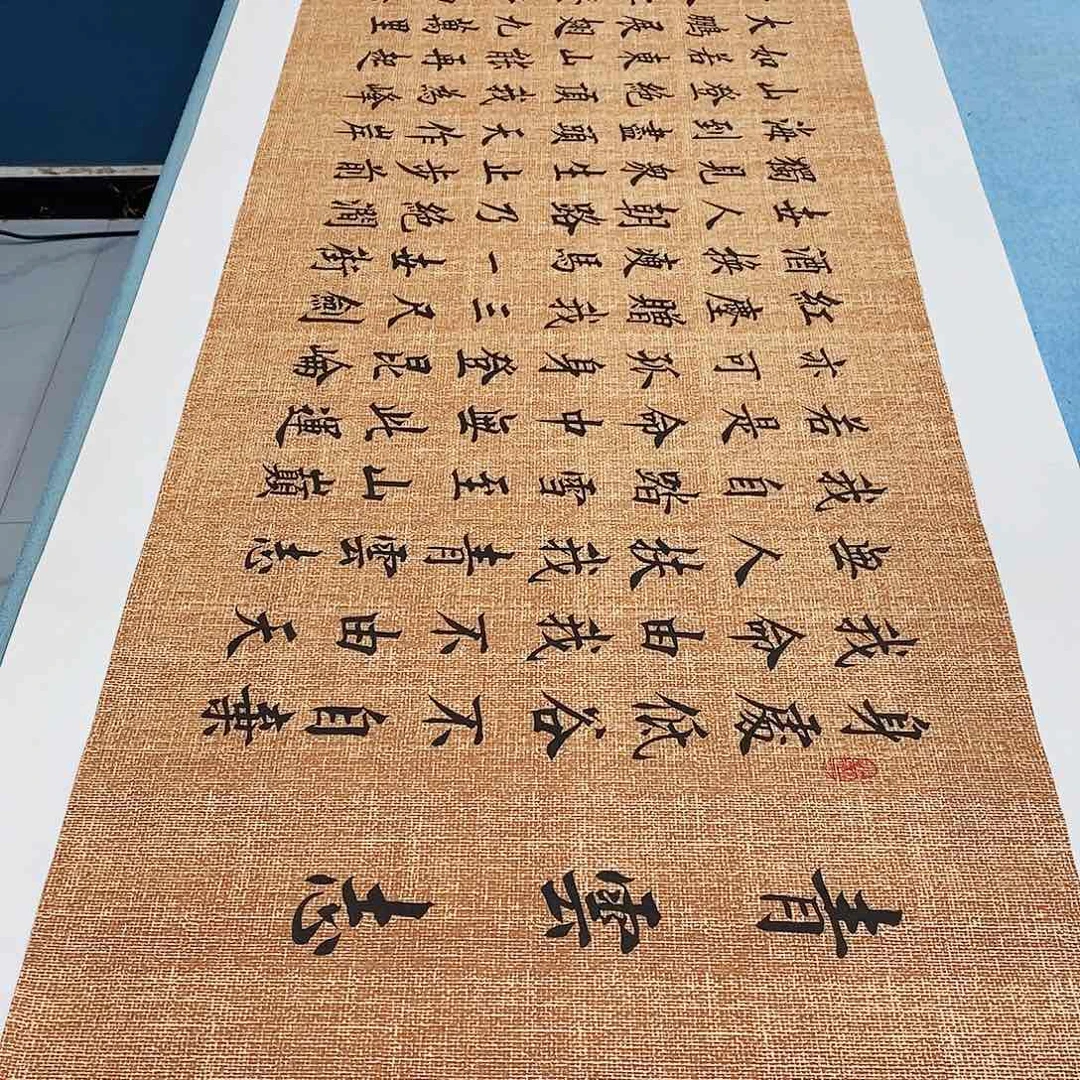 青雲志
身處低谷不自棄
我命由我不由天
無人扶我青雲志
我自踏雪至山巔
若是命中無此運
亦可孤身登昆崘
紅塵贈我三尺劍
酒換瘦馬一世街
世人朝路乃絕澗
獨見衆生止步前
海到盡頭天作岸
山登絕頂我為峰
如若東山能再起
大鵬展翅九萬里